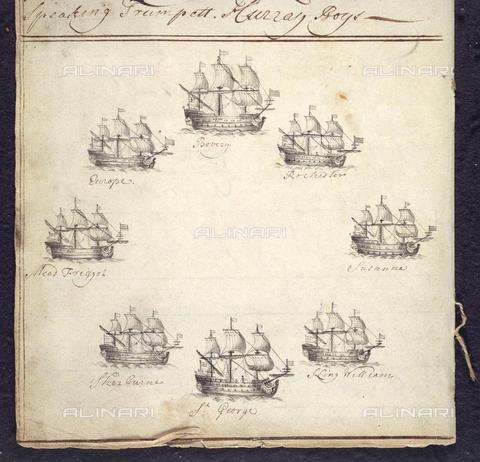 Speaking Trumpett. Hurray Boys
ALINARI
ALINARI
Bovery
Europe.
Rochester
ALINARI
Mead Friggot
Susanna
Sherburne
King William
St George
ALINARI
ALINARI